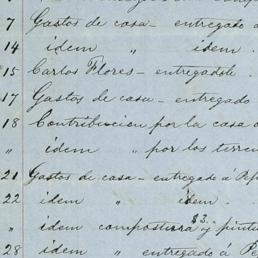 7 Gastos de casa - entregado a
14 idem " idem .
15 Carlos Flores - entregadole .
17 Gastos de casa - entregado
18 Contribucion por la casa
" idem " por los terren
21 Gastos de casa - entregado á
22 idem " idem .
" idem compostura $3. y pintu
28 idem " entregado á Pe